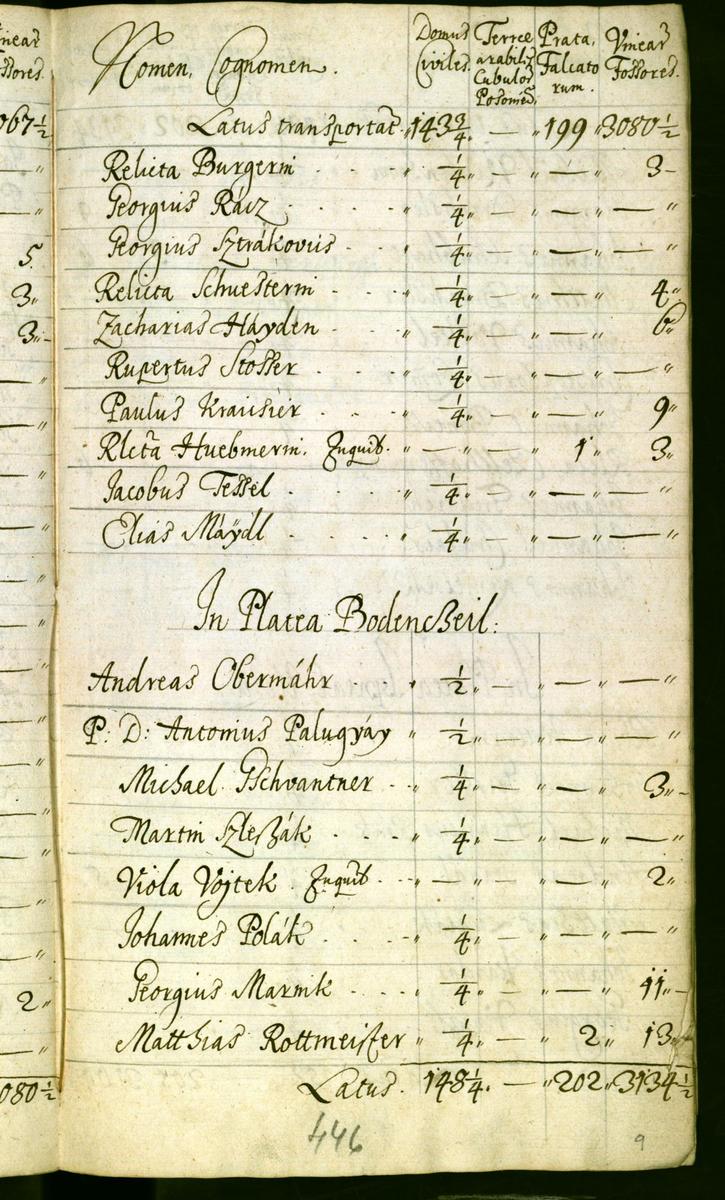 067 ½
"
"
5.
3"
3"-
2"
080 ½
Nomen, Cognomen. Domus Civiles. Terrae arabiles Cubulor. Posonies. Prata, Falcatorum. Vinear. Fossores.
Latus transportat. " 143 3/4 " — " 199 " 3080 ½
Relicta Burgerin . . . " 1/4 " — " — " 3 -
Georgius Rácz . . . " 1/4 " — " — " — "
Georgius Sztrákovits . . " 1/4 " — " — " — "
Relicta Schuesterin . . . " 1/4 " — " — " 4 "
Zacharias Hayden . . . " 1/4 " — " — " 6 "
Rupertus Stosser . . . " 1/4 " — " — " — "
Paulus Krausier . . . " 1/4 " — " — " 9 "
Rlcta Huebmerin. Inquib. " — " — " 1 " 3 "
Jacobus Tessel . . . " 1/4 " — " — " — "
Elias Maÿdl . . . . " 1/4 " — " — " — "
In Platea Bodenczeil:
Andreas Obermáhr . . " 1/2 " — " — " — "
P: D: Antonius Palugyáy " 1/2 " — " — " — "
Michael Gschvantner . . " 1/4 " — " — " 3 " -
Martin Szleszák . . . " 1/4 " — " — " — "
Viola Vojtek . Inquib . . " — " — " — " 2 "
Johannes Polák . . . " 1/4 " — " — " — "
Georgius Marnik . . . " 1/4 " — " — " 11 " -
Matthias Rottmeister " 1/4 " — " 2 " 13 "
Latus . 148 1/4 " — " 202 " 3134 ½
446
9